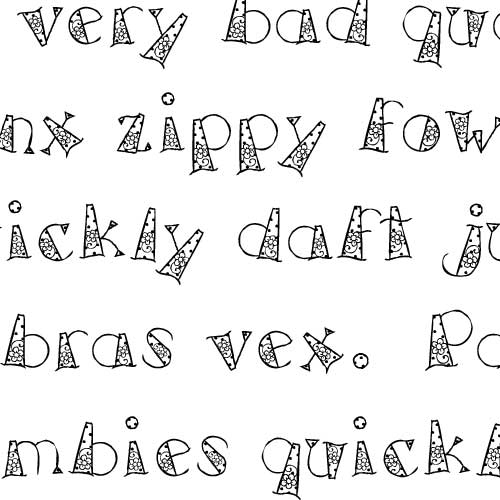 very bad qu
nx zippy fow
ickly daft ju
bras vex. Pa
mbies quickl